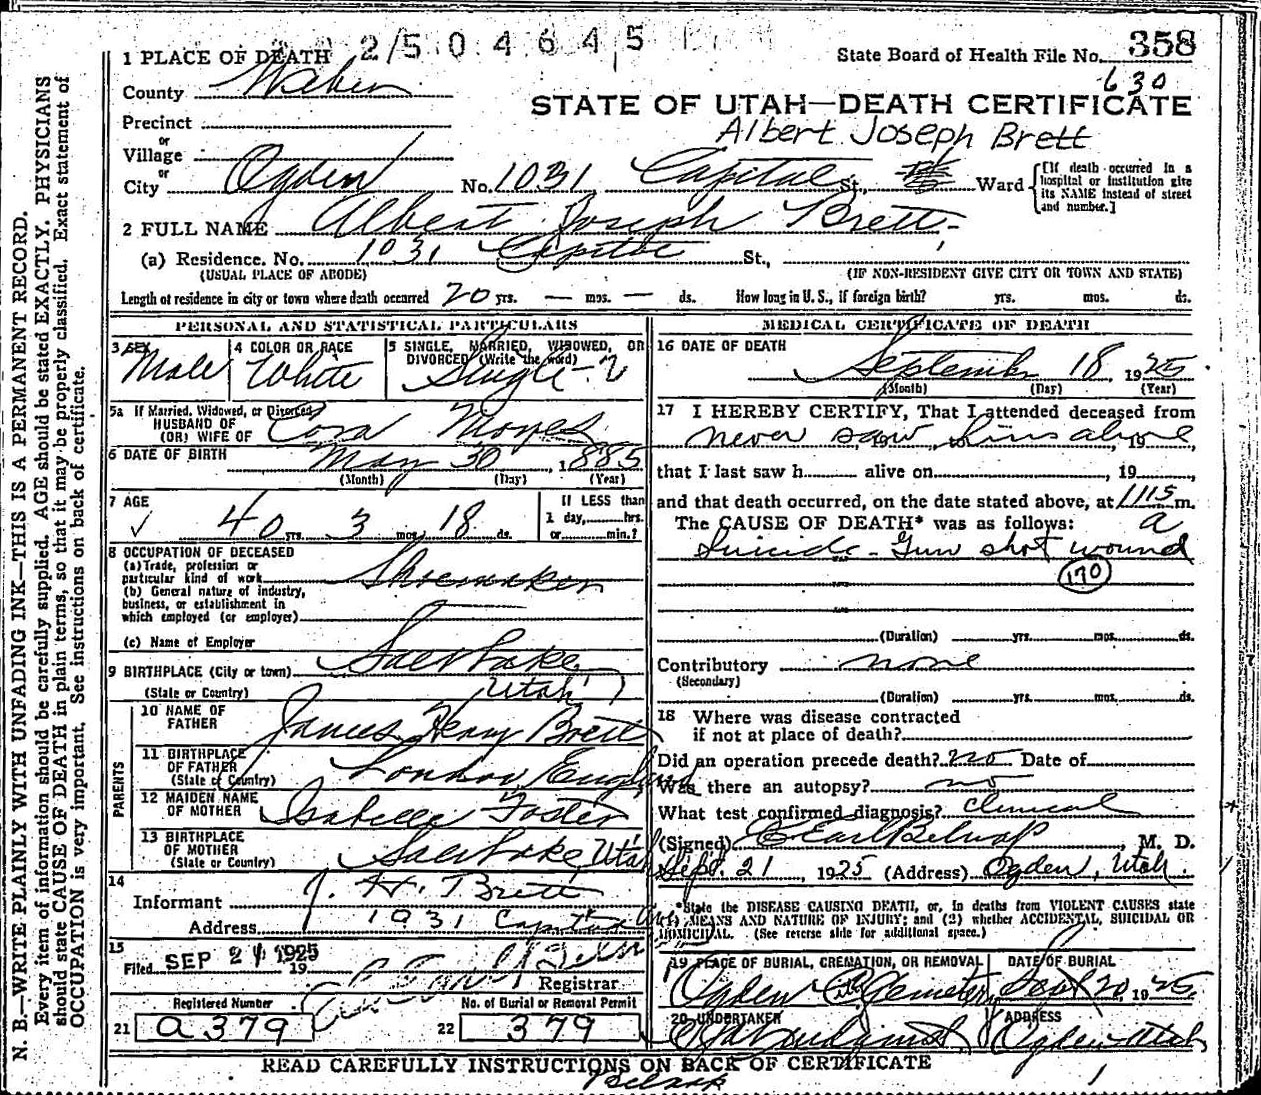 2/504645
State Board of Health File No. 358
630
1 PLACE OF DEATH
County Weber
STATE OF UTAH—DEATH CERTIFICATE
Precinct
Albert Joseph Brett
or
Village
or
City Ogden No. 1031 Capitol St., Ward [If death occurred in a hospital or institution give its NAME instead of street and number.]
2 FULL NAME Albert Joseph Brett
(a) Residence. No. 1031 Capitol St.,
(USUAL PLACE OF ABODE) (IF NON-RESIDENT GIVE CITY OR TOWN AND STATE)
Length of residence in city or town where death occurred 20 yrs. — mos. — ds. How long in U. S., if foreign birth? yrs. mos. ds.
PERSONAL AND STATISTICAL PARTICULARS
3 SEX Male
4 COLOR OR RACE White
5 SINGLE, MARRIED, WIDOWED, OR DIVORCED (Write the word) Single-?
5a If Married, Widowed, or Divorced
HUSBAND OF
(OR) WIFE OF Cora Moyes
6 DATE OF BIRTH May 30, 1885
(Month) (Day) (Year)
7 AGE 40 yrs. 3 mos. 18 ds.
If LESS than
1 day, hrs.
or min.?
8 OCCUPATION OF DECEASED
(a) Trade, profession or
particular kind of work Shoemaker
(b) General nature of industry,
business, or establishment in
which employed (or employer)
(c) Name of Employer
9 BIRTHPLACE (City or town) Salt Lake
(State or Country) Utah
PARENTS
10 NAME OF FATHER James Henry Brett
11 BIRTHPLACE OF FATHER (State or Country) London England
12 MAIDEN NAME OF MOTHER Isabelle Foster
13 BIRTHPLACE OF MOTHER (State or Country) Salt Lake, Utah
14
Informant J. H. Brett
Address 1931 Capitol Ave
15
Filed SEP 21 1925 19
Registrar
Registered Number No. of Burial or Removal Permit
21 a379 22 379
MEDICAL CERTIFICATE OF DEATH
16 DATE OF DEATH
September 18, 1925
(Month) (Day) (Year)
17 I HEREBY CERTIFY, That I attended deceased from
never saw him alive
that I last saw h alive on , 19 ,
and that death occurred, on the date stated above, at 1115 m.
a
The CAUSE OF DEATH* was as follows:
Suicide - Gun shot wound
170
(Duration) yrs. mos. ds.
Contributory none
(Secondary)
(Duration) yrs. mos. ds.
18 Where was disease contracted
if not at place of death?
Did an operation precede death? no Date of
Was there an autopsy? no
What test confirmed diagnosis? clinical
(Signed) C Earl Belnap, M. D.
Sept. 21, 1925 (Address) Ogden, Utah.
*State the DISEASE CAUSING DEATH, or, in deaths from VIOLENT CAUSES state
(1) MEANS AND NATURE OF INJURY; and (2) whether ACCIDENTAL, SUICIDAL OR
HOMICIDAL. (See reverse side for additional space.)
19 PLACE OF BURIAL, CREMATION, OR REMOVAL DATE OF BURIAL
Ogden City Cemetery Sept 20, 1925
20 UNDERTAKER ADDRESS
Ogden Utah
READ CAREFULLY INSTRUCTIONS ON BACK OF CERTIFICATE
N. B.—WRITE PLAINLY WITH UNFADING INK—THIS IS A PERMANENT RECORD.
Every item of information should be carefully supplied. AGE should be stated EXACTLY. PHYSICIANS
should state CAUSE OF DEATH in plain terms, so that it may be properly classified. Exact statement of
OCCUPATION is very important. See instructions on back of certificate.